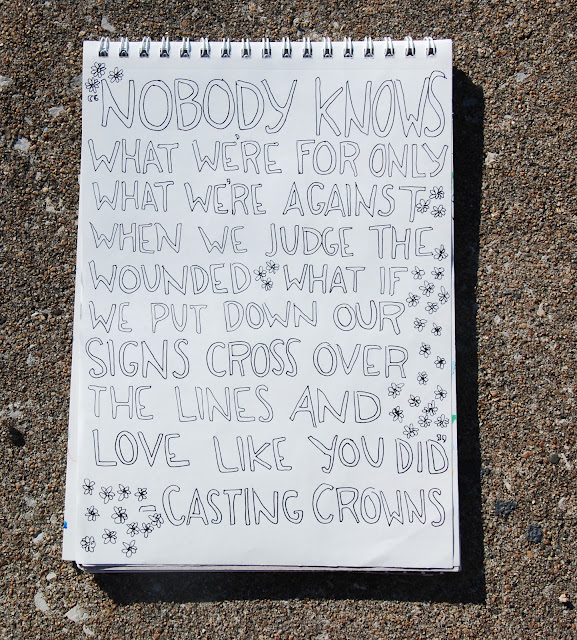 "NOBODY KNOWS
WHAT WE'RE FOR ONLY
WHAT WE'RE AGAINST
WHEN WE JUDGE THE
WOUNDED WHAT IF
WE PUT DOWN OUR
SIGNS CROSS OVER
THE LINES AND
LOVE LIKE YOU DID"
-CASTING CROWNS